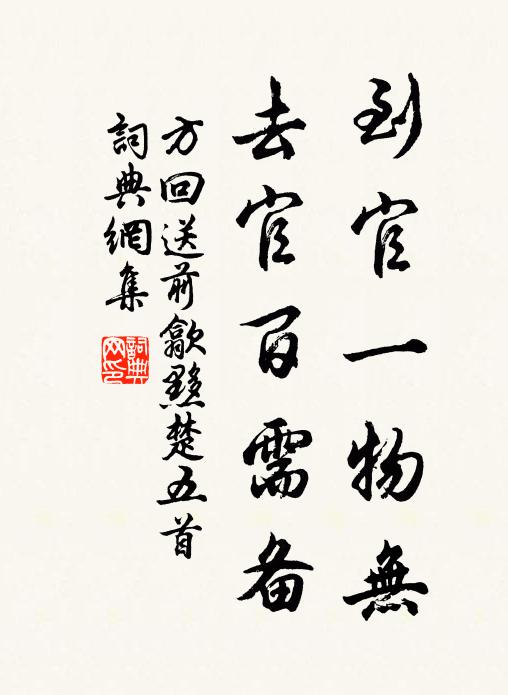 到官一物無
去官百需备
方回送前歙黟楚五首
詞典網集
詞典網印